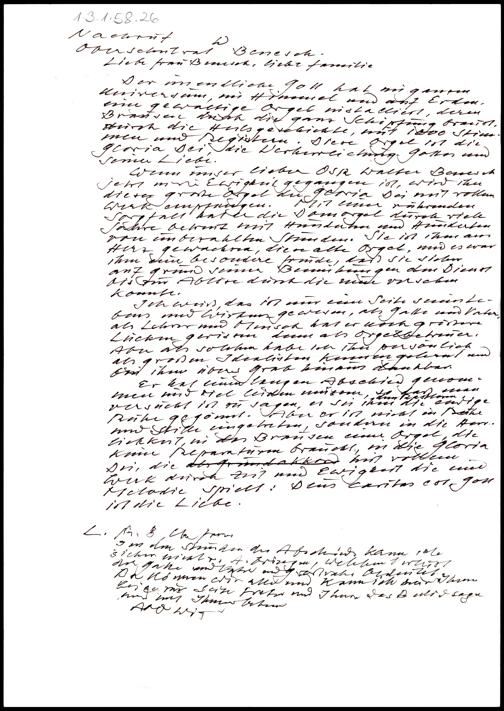 13.1.58.26
Nachruf W
Oberschulrat Benesch.
Liebe Frau Benesch, liebe Familie
Der unendliche Gott hat im ganzen
Universum, im Himmel und auf Erden
eine gewaltige Orgel installiert, deren
Brausen durch die ganze Schöpfung braust,
durch die Heilsgeschichte, mit 1000 Stim-
men und Registern. Diese Orgel ist die
Gloria Dei, die Verherrlichung Gottes und
seiner Liebe.
Wenn unser lieber OSR Walter Benesch
jetzt in die Ewigkeit gegangen ist, wird ihn
diese große Orgel der Gloria Dei mit vollem
Werk empfangen. Mit einer rührenden
Sorgfalt hat er die Domorgel durch viele
Jahre betreut mit Hunderten und Hunderten
von unbezahlten Stunden. Sie ist ihm ans
Herz gewachsen, diese alte Orgel, und es war
ihm eine besondere Freude, daß sie sicher
auf Grund seiner Bemühungen den Dienst
bis zur Ablöse durch die neue versehen
konnte.
Ich weiß, das ist nur eine Seite seines Le-
bens und Wirkens gewesen, als Gatte und Vater,
als Lehrer und Mensch hat er noch größere
Lücken gerissen denn als Orgelbetreuer.
Aber als solchen habe ich ihn persönlich
als großen Idealisten kennengelernt und
bin ihm übers Grab hinaus dankbar.
Er hat einen langen Abschied genom-
men und viel leiden müssen, so daß man
versucht ist zu sagen, es sei ihm die ewige
Ruhe gegönnt. Aber er ist nicht in Ruhe
und Stille eingetreten, sondern in die Herr-
lichkeit, in das Brausen einer Orgel, die
keine Reparaturen braucht, in die Gloria
Dei, die als Grundakkord mit vollem
Werk durch Zeit und Ewigkeit die eine
Melodie spielt: Deus caritas est, Gott
ist die Liebe.
L.
In den Stunden des Abschieds kann
der Gatte und Vater und
Da können wir alle und kann ich nur Ihnen
zur Seite treten und Ihnen das Beileid sagen
und mit Ihnen beten